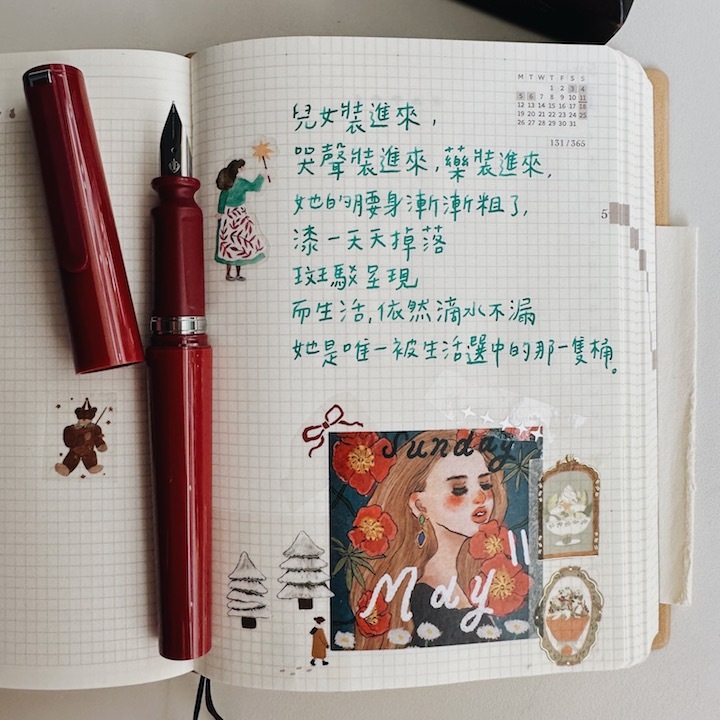 M T W T F S S
1 2 3 4
5 6 7 8 9 10 11
12 13 14 15 16 17 18
19 20 21 22 23 24 25
26 27 28 29 30 31
131/365
5
兒女裝進來,
哭聲裝進來,藥裝進來,
她的腰身漸漸粗了,
漆一天天掉落
斑駁呈現
而生活,依然滴水不漏
她是唯一被生活選中的那一隻桶。
Sunday
11
May